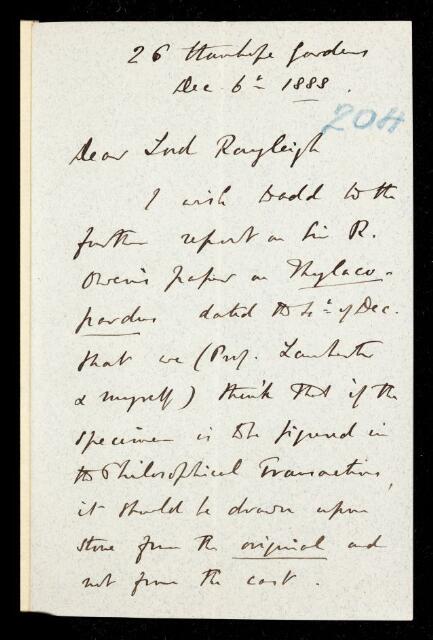 26 Stanhope Gardens
Dec 6th 1888.
204
Dear Lord Rayleigh
I wish to add to the
further report on Sir R.
Owen's paper on Thylaco-
pardus dated the 4th of Dec.
that we (Prof.
& myself) think that if the
specimen is to be figured in
the Philosophical Transactions,
it should be drawn upon
stone from the original and
not from the cast.